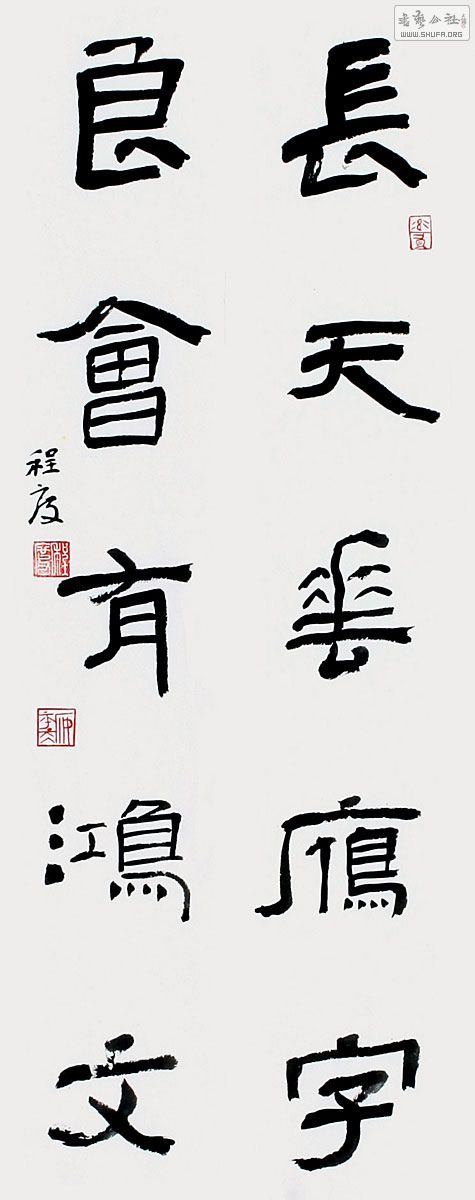 長天垂鴈字
良會有鴻文
程度
書藝公社
WWW.SHUFA.ORG